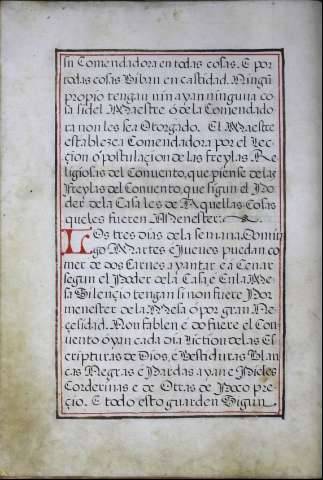 su Comendadora en todas cosas. E por
todas cosas Biban en castidad. Ningũ
propio tengan nin ayan ninguna co
sa si del Maestre ó de la Comendado
ra non les sea Otorgado. El Maestre
establezca Comendadora por el Lec
cion ó postulacion de las freylas. Re
ligiosas del Convento, que piense de las
Freylas del Convento, que sigun el Po
der de la Casa les de Aquellas Cosas
que les fueren Menester.
LOs tres dias de la semana. Domin
go Martes e Jueves puedan co
mer de dos Carnes a yantar e a Cenar
segun el Poder de la Casa, E en la Me
sa Silencio tengan si non fuere Por
menester de la Mesa ó por gran Ne
çesidad. Non fablen e do fuere el Con
vento óyan cada dia Liction de las Es
cripturas de Dios, é Bestiduras Blan
cas Negras e Pardas ayan e Pieles
Corderinas e de Otras de Poco pre
çio. E todo esto guarden Sigun